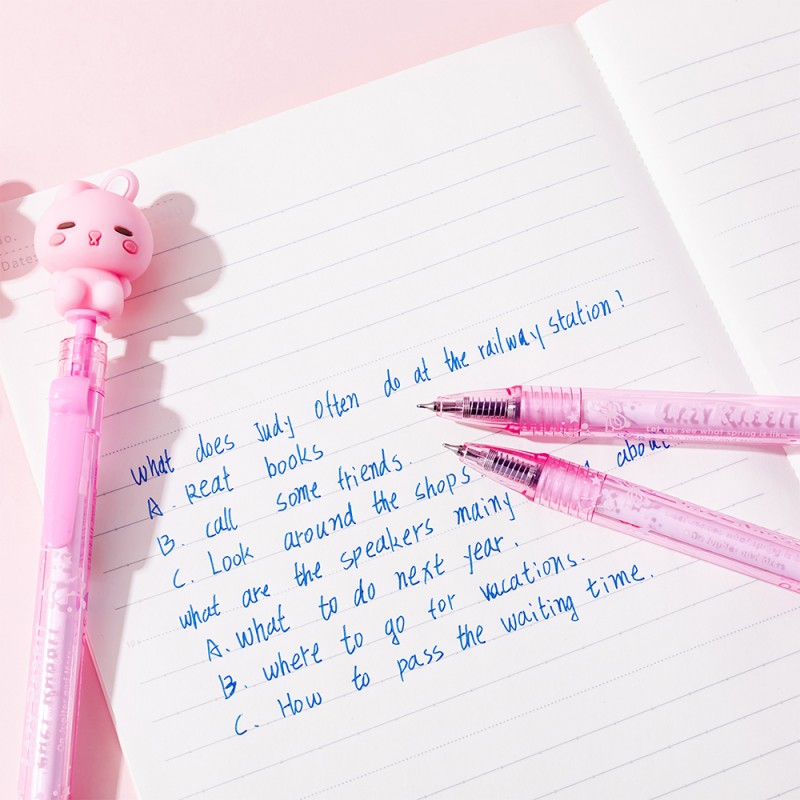 No.
Date:
what does Judy Often do at the railway station?
A. Reat books
B. call some friends.
C. Look around the shops.
what are the speakers mainy about
A. what to do next year.
B. where to go for vacations.
C. How to pass the waiting time.